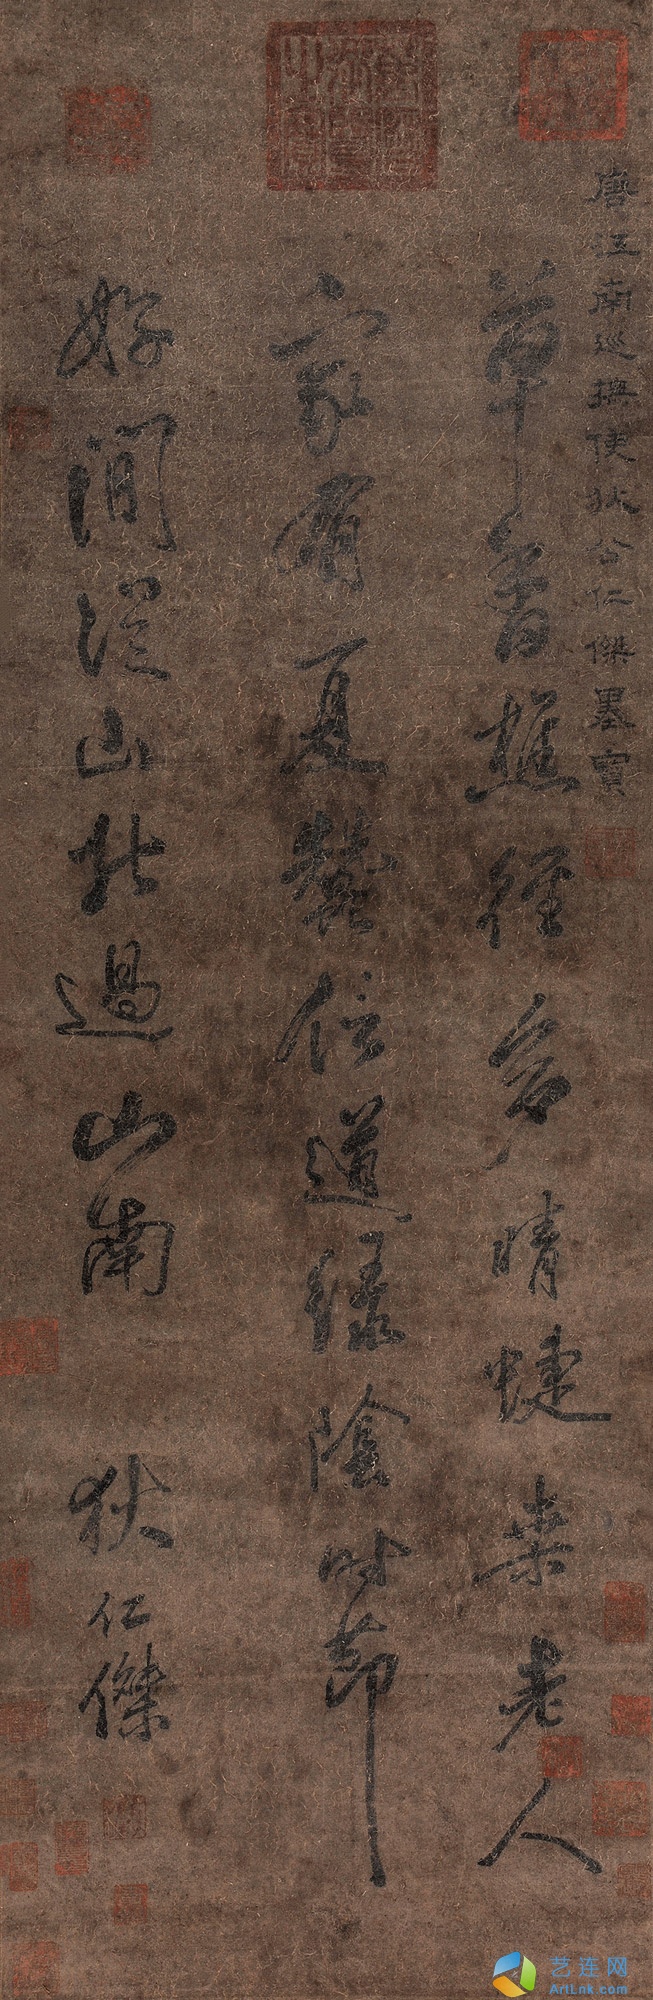 唐江南巡撫使狄公仁傑墨寶
草香樵徑多晴蜨桑老人
家有夏蠶信道綠陰時節
好閒從山北過山南
狄仁傑
艺连网
ArtLnk.com